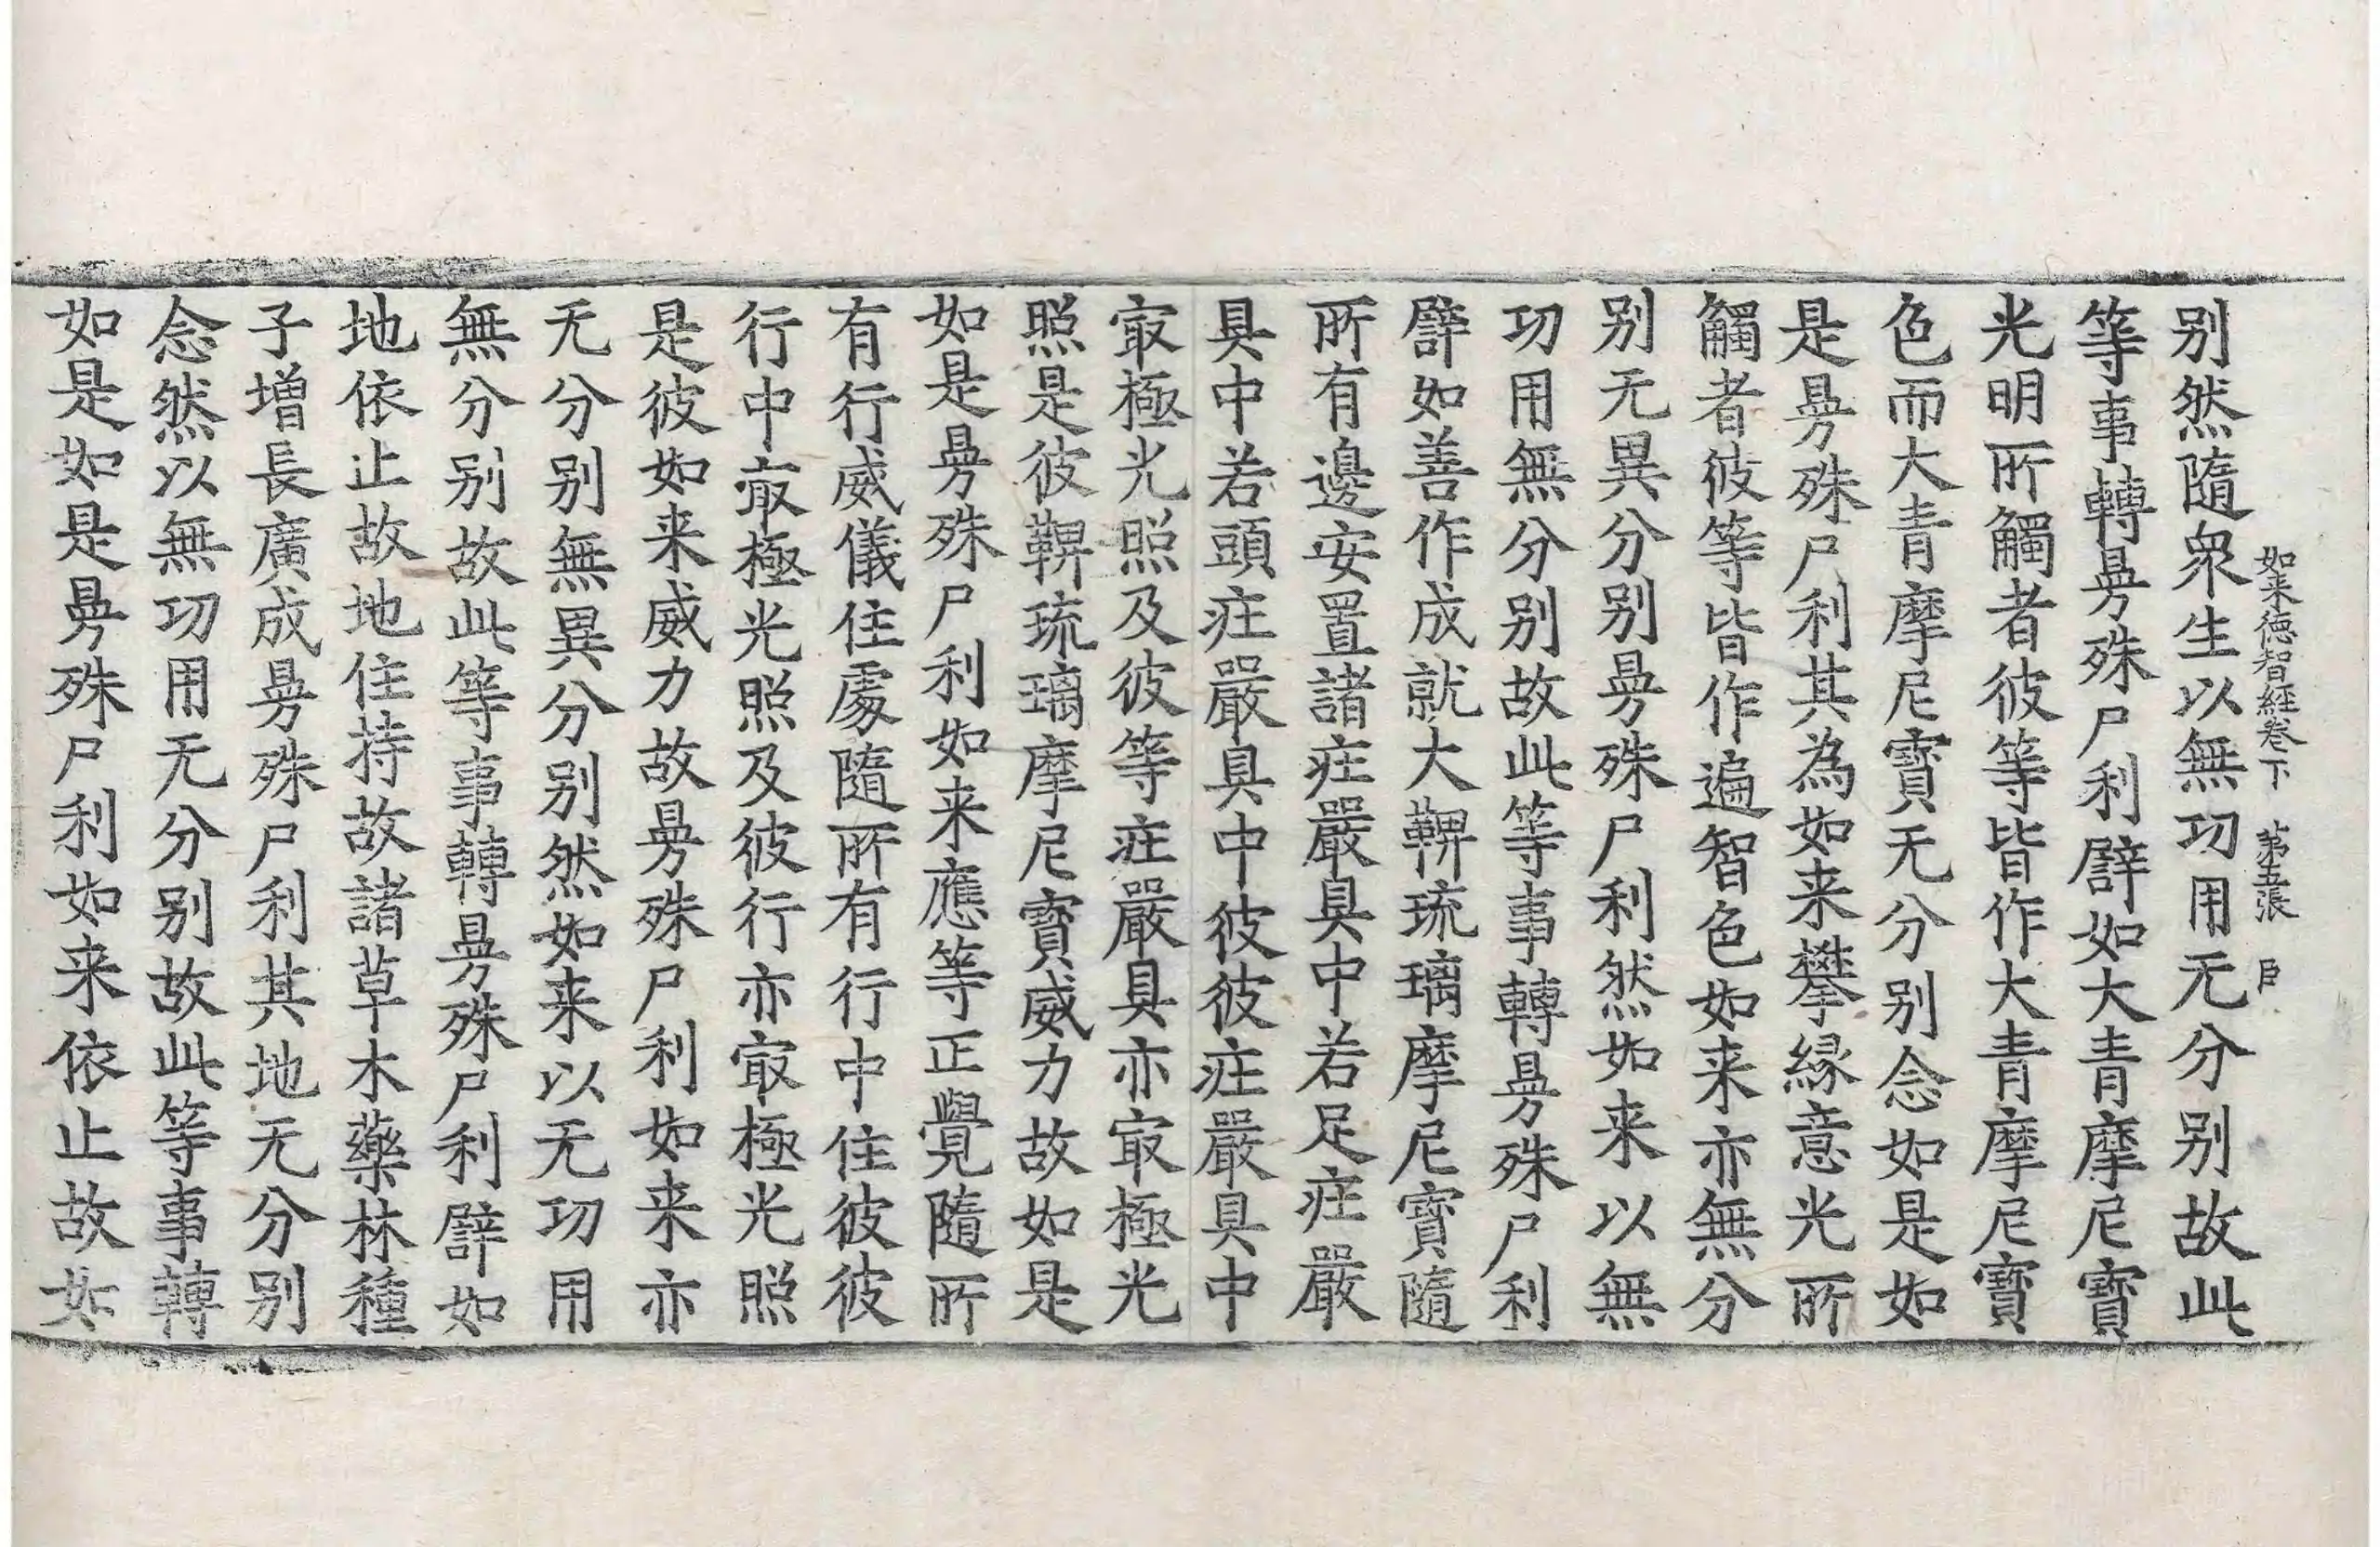 如来德智經卷下 第五張 臣
别然隨衆生以無功用无分别故此
等事轉㬅殊尸利譬如大青摩尼寶
光明所觸者彼等皆作大青摩尼寶
色而大青摩尼寶无分别念如是如
是㬅殊尸利其為如来攀縁意光所
觸者彼等皆作遍智色如来亦無分
别无異分别㬅殊尸利然如来以無
功用無分别故此等事轉㬅殊尸利
譬如善作成就大鞞琉璃摩尼寶隨
所有邊安置諸庄嚴具中若足庄嚴
具中若頭庄嚴具中彼彼庄嚴具中
㝡極光照及彼等庄嚴具亦㝡極光
照是彼鞞琉璃摩尼寶威力故如是
如是㬅殊尸利如来應等正覺隨所
有行威儀住處隨所有行中住彼彼
行中㝡極光照及彼行亦㝡極光照
是彼如来威力故㬅殊尸利如来亦
无分别無異分别然如来以无功用
無分别故此等事轉㬅殊尸利譬如
地依止故地住持故諸草木藥林種
子增長廣成㬅殊尸利其地无分别
念然以無功用无分别故此等事轉
如是如是㬅殊尸利如来依止故如